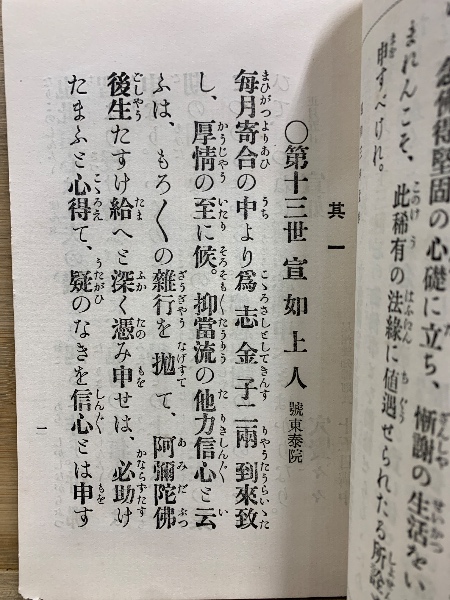 念佛得堅固の心礎に立ち、慚謝の生活をい
まれんこそ、此稀有の法緣に値遇せられたる所詮
申すべけれ。
其一
○第十三世宣如上人 號東泰院
每月寄合の中より爲志金子二兩到來致
し、厚情の至に候。抑當流の他力信心と云
ふは、もろ〱の雜行を抛て、阿彌陀佛
後生たすけ給へと深く憑み申せは、必助け
たまふと心得て、疑のなきを信心とは申す
一